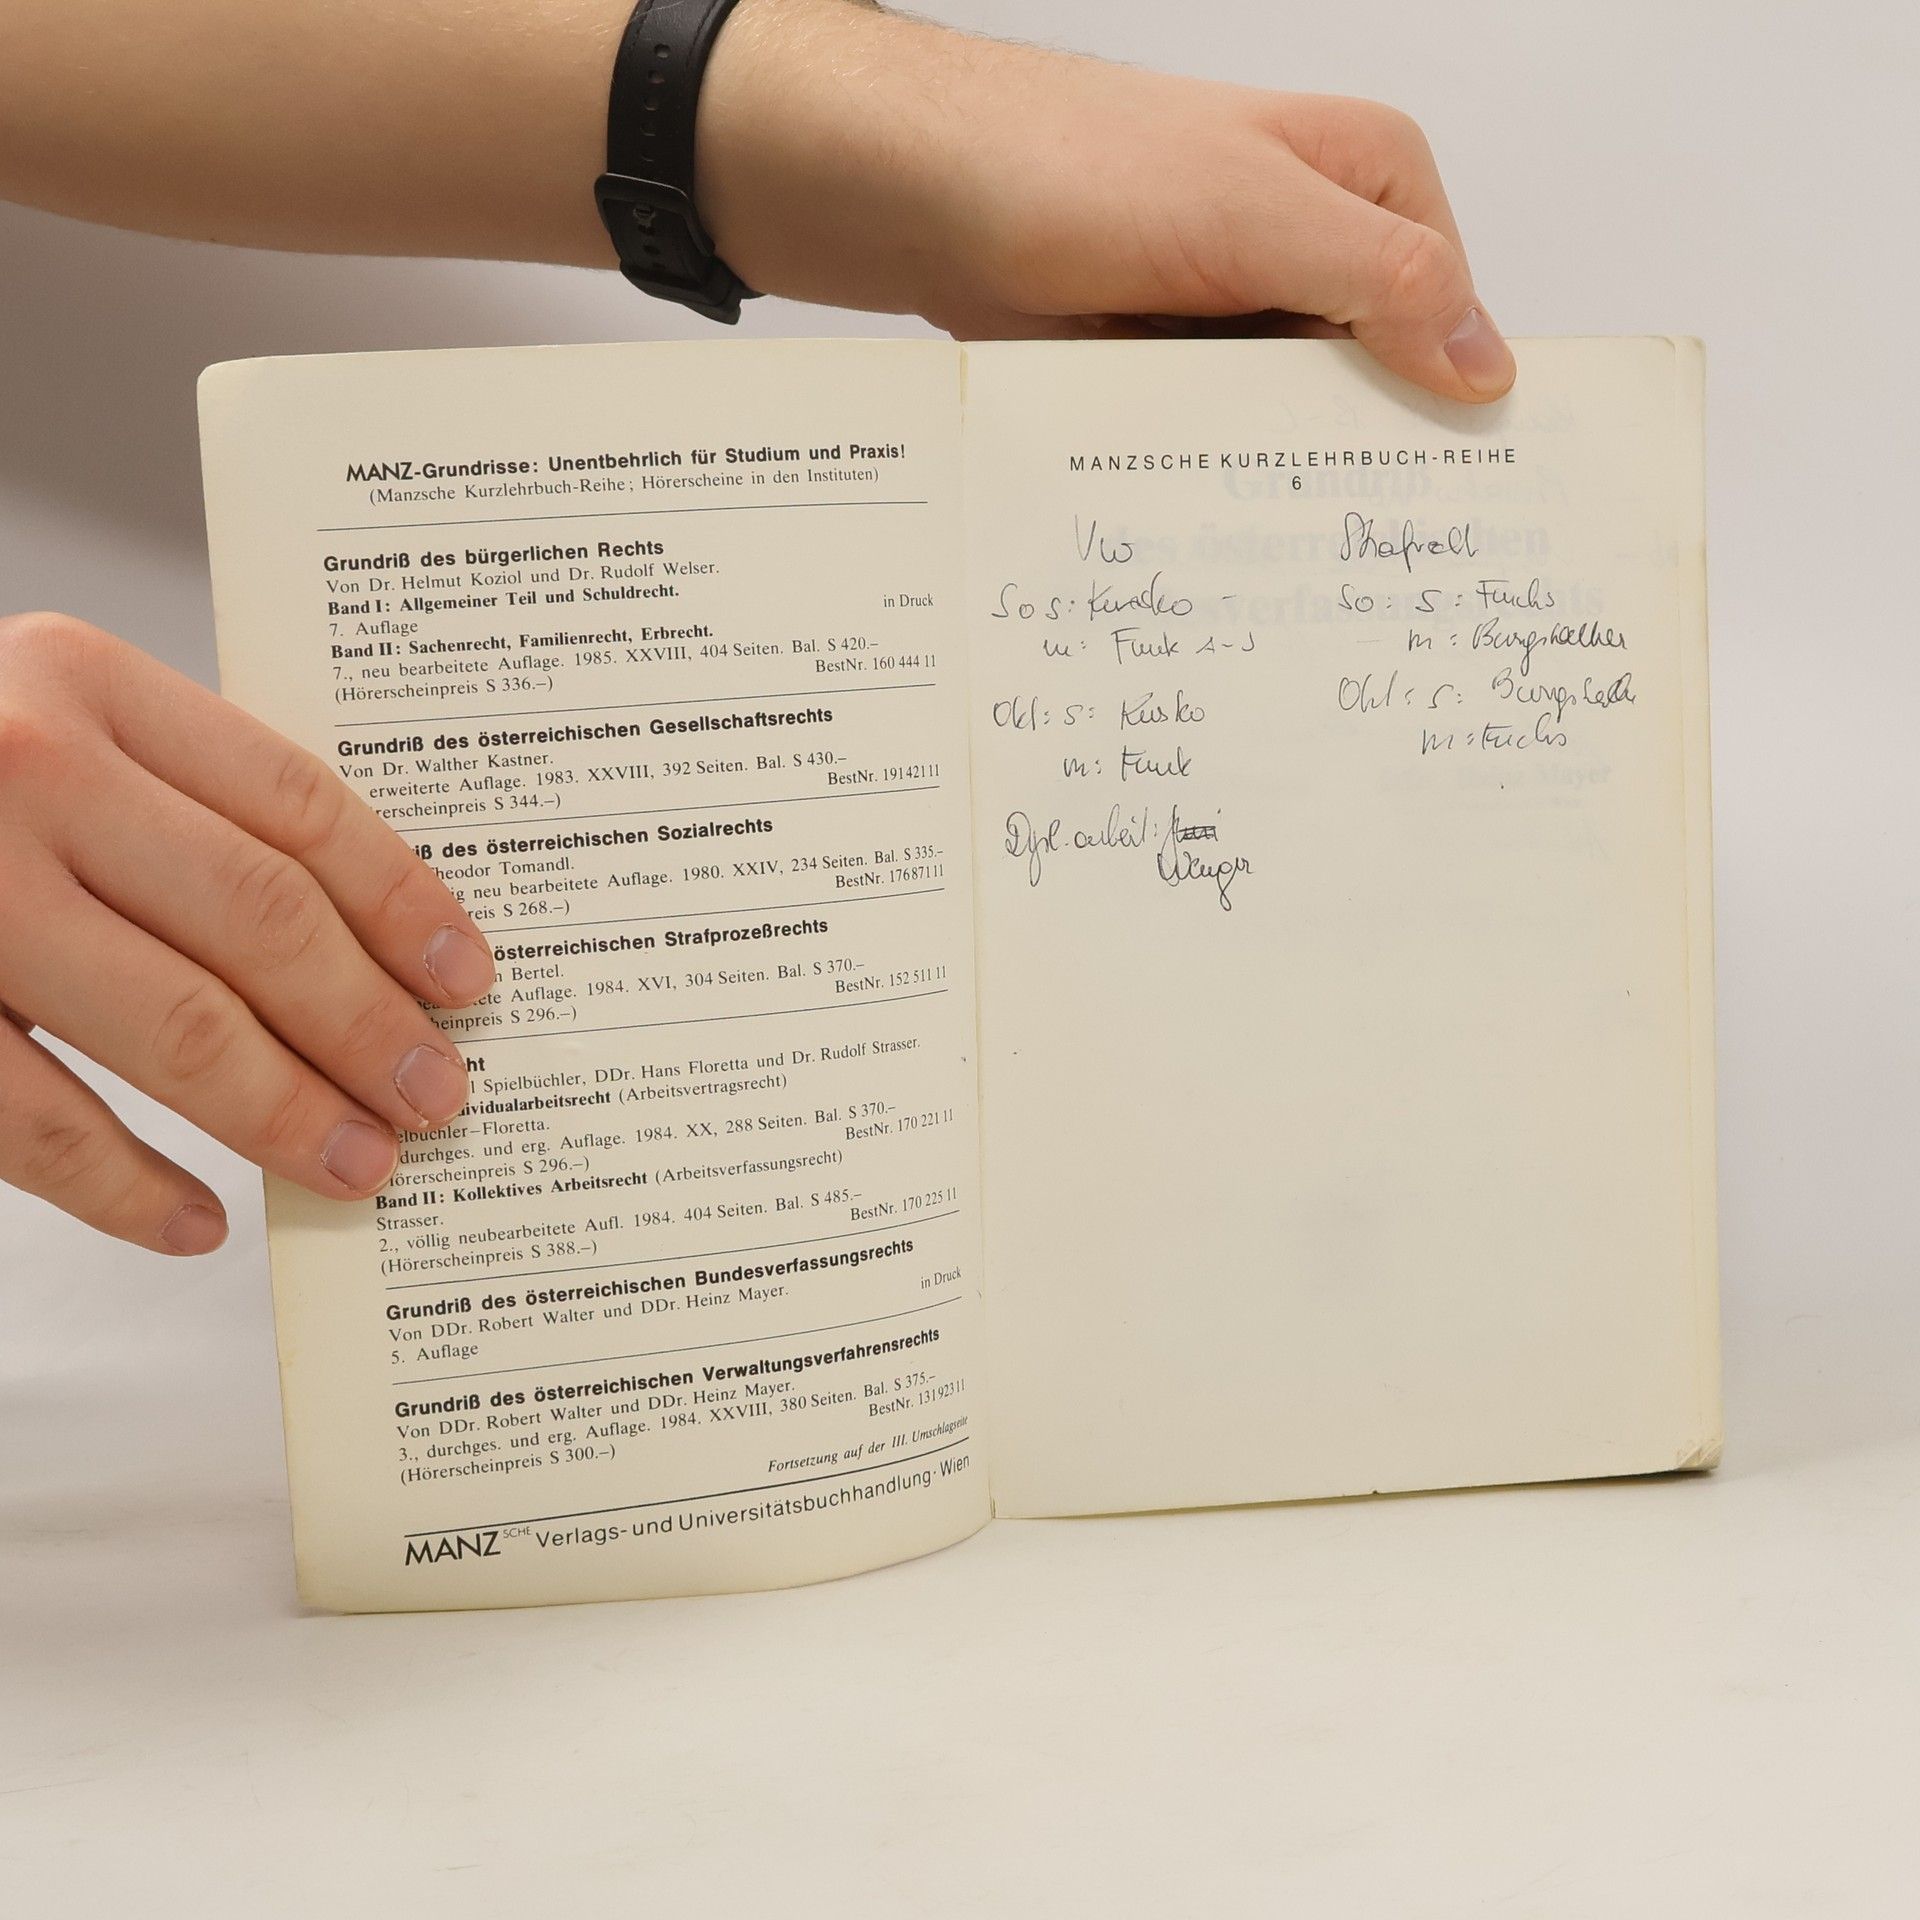 MANZ-Grundrisse: Unentbehrlich für Studium und Praxis!
(Manzsche Kurzlehrbuch-Reihe; Hörerscheine in den Instituten)
Grundriß des bürgerlichen Rechts
Von Dr. Helmut Koziol und Dr. Rudolf Welser.
Band I: Allgemeiner Teil und Schuldrecht.
7. Auflage in Druck
Band II: Sachenrecht, Familienrecht, Erbrecht.
7., neu bearbeitete Auflage. 1985. XXVIII, 404 Seiten. Bal. S 420.–
(Hörerscheinpreis S 336.–) BestNr. 160 444 11
Grundriß des österreichischen Gesellschaftsrechts
Von Dr. Walther Kastner.
erweiterte Auflage. 1983. XXVIII, 392 Seiten. Bal. S 430.–
rerscheinpreis S 344.–) BestNr. 191 421 11
iß des österreichischen Sozialrechts
heodor Tomandl.
ig neu bearbeitete Auflage. 1980. XXIV, 234 Seiten. Bal. S 335.–
reis S 268.–) BestNr. 176 871 11
österreichischen Strafprozeßrechts
n Bertel.
ete Auflage. 1984. XVI, 304 Seiten. Bal. S 370.–
heinpreis S 296.–) BestNr. 152 511 11
ht
l Spielbüchler, DDr. Hans Floretta und Dr. Rudolf Strasser.
dividualarbeitsrecht (Arbeitsvertragsrecht)
elbüchler–Floretta.
durchges. und erg. Auflage. 1984. XX, 288 Seiten. Bal. S 370.–
örerscheinpreis S 296.–) BestNr. 170 221 11
Band II: Kollektives Arbeitsrecht (Arbeitsverfassungsrecht)
Strasser.
2., völlig neubearbeitete Aufl. 1984. 404 Seiten. Bal. S 485.–
(Hörerscheinpreis S 388.–) BestNr. 170 225 11
Grundriß des österreichischen Bundesverfassungsrechts
Von DDr. Robert Walter und DDr. Heinz Mayer.
5. Auflage in Druck
Grundriß des österreichischen Verwaltungsverfahrensrechts
Von DDr. Robert Walter und DDr. Heinz Mayer.
3., durchges. und erg. Auflage. 1984. XXVIII, 380 Seiten. Bal. S 375.–
(Hörerscheinpreis S 300.–) BestNr. 131 923 11
Fortsetzung auf der III. Umschlagseite
MANZSCHE Verlags- und Universitätsbuchhandlung · Wien
MANZSCHE KURZLEHRBUCH-REIHE
6
Vw
So s: Kusko –
m: Funk
Okt: s: Kusko
m: Funk
arbeit:
Wenger
So: s: Fuchs
m: Burgstaller
Okt: s:
m: Fuchs